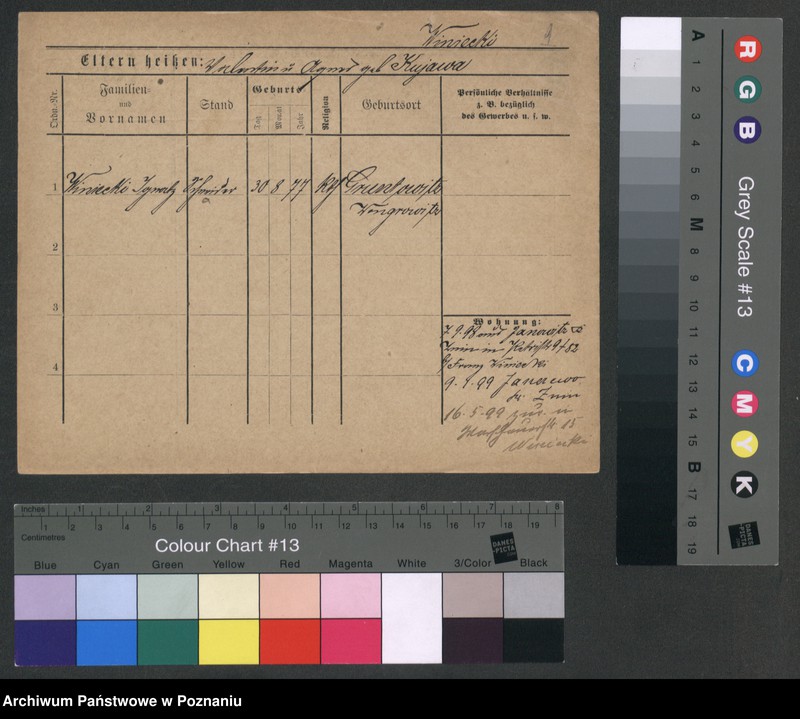 Winiecki
1
Eltern heißen: Valentin u Agnes geb Kujawa
Ordn.-Nr.
Familien- und Vornamen
Stand
Geburts
Tag
Monat
Jahr
Religion
Geburtsort
Persönliche Verhältnisse
z. B. bezüglich
des Gewerbes u. s. w.
1 Winiecki Ignatz Schneider 30 8 77 kth
Wongrowitz
2
3
4
Wohnung:
7.9.98 aus Janowitz
Franz Winiecki
9.1.99
16.5.99
15
Winiecki
Inches 1 2 3 4 5 6 7 8
Centimetres 1 2 3 4 5 6 7 8 9 10 11 12 13 14 15 16 17 18 19
Colour Chart #13
DANES
-PICTA
.COM
Blue Cyan Green Yellow Red Magenta White 3/Color Black
A 1 2 3 4 5 6 M 8 9 10 11 12 13 14 15 B 17 18 19
R G B
Grey Scale #13
C M Y K
DANES
-PICTA
.COM
Archiwum Państwowe w Poznaniu